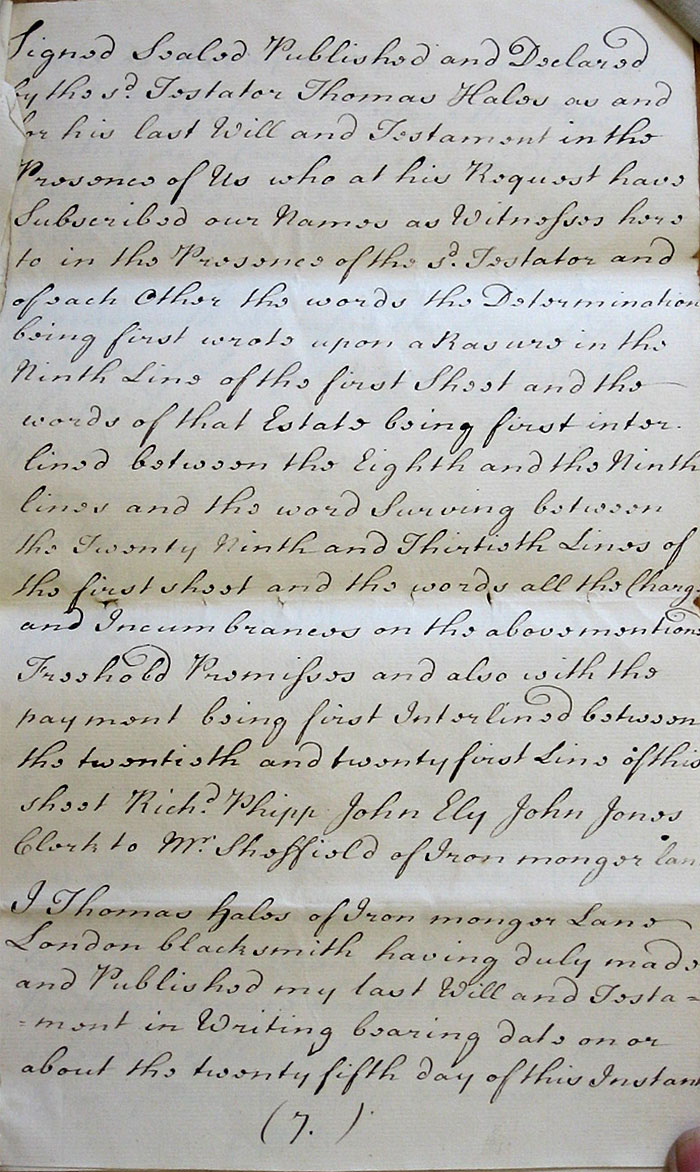 Signed Sealed Published and Declared
by the sd. Testator Thomas Hales as and
for his last Will and Testament in the
Presence of Us who at his Request have
Subscribed our Names as Witnesses here
to in the Presence of the sd. Testator and
of each Other the words the Determination
being first wrote upon a Rasure in the
Ninth Line of the first Sheet and the
words of that Estate being first inter.
lined between the Eighth and the Ninth
lines and the word Surving between
the Twenty Ninth and Thirtieth Lines of
the first sheet and the words all the Charg
and Incumbrances on the abovemention
Freehold Premisses and also with the
payment being first Interlined between
the twentieth and twenty first Line of this
sheet Richd. Phipp John Ely John Jones
Clerk to Mr. Sheffield of Iron monger lan
I Thomas Hales of Iron monger Lane
London blacksmith having duly made
and Published my last Will and Testa=
=ment in Writing bearing date on or
about the twenty fifth day of this Instan
(7.)